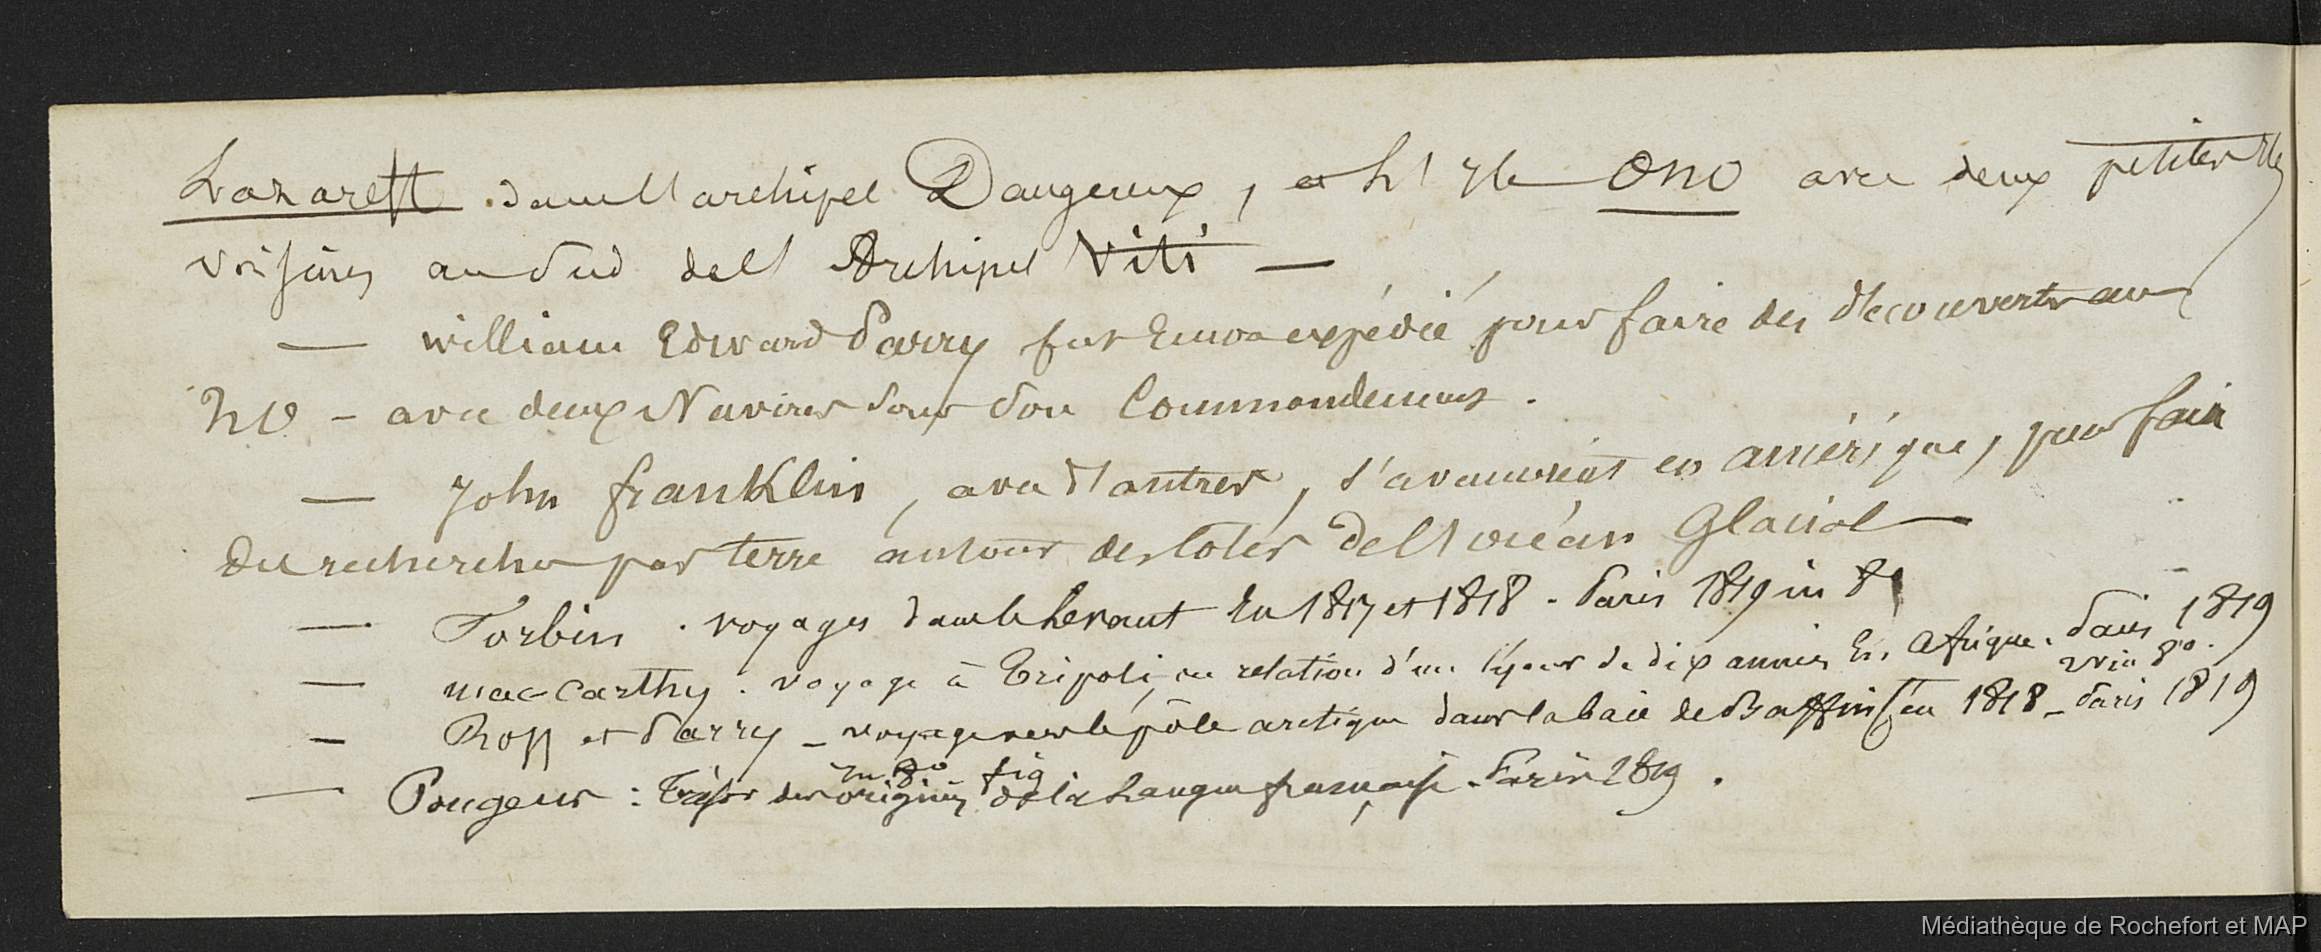 Lazareff dans l'archipel Dangereux, et l'Ile Ono avec deux petites Iles
voisines au Sud de l'Archipel Viti —
— william Edward Parry fut Envoa expédié pour faire des d'ecouvertes au
NO - avec deux Navires sous son Commandement.
— John franklin, avec d'autres, s'avancoient en amérique, pour fair
des recherches par terre autour des Cotes de l'océan Glacial —
— Forbin. voyages dans le Levant En 1817 et 1818 - Paris 1819 in 8°
— mac-Carthy. voyage à Tripoli, ou relation d'un sejour de dix années En afrique. Paris 1819
2 v in 8°.
— Ross et Parry - voyage vers le pôle arctique dans la baie de Baffin's en 1818 - Paris 1819
in 8° fig
— Pougens : Trésor des origines de la Langue française - Paris 1819.
Médiathèque de Rochefort et MAP